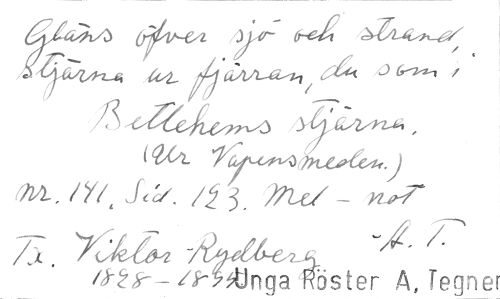 Gläns öfver sjö och strand,
stjärna ur fjärran, du som i
Betlehems stjärna.
(Ur Vapensmeden.)
nr. 141. Sid. 123. Mel - not
- A. T.
Tx. Viktor Rydberg
1828-1895 Unga Röster A, Tegner